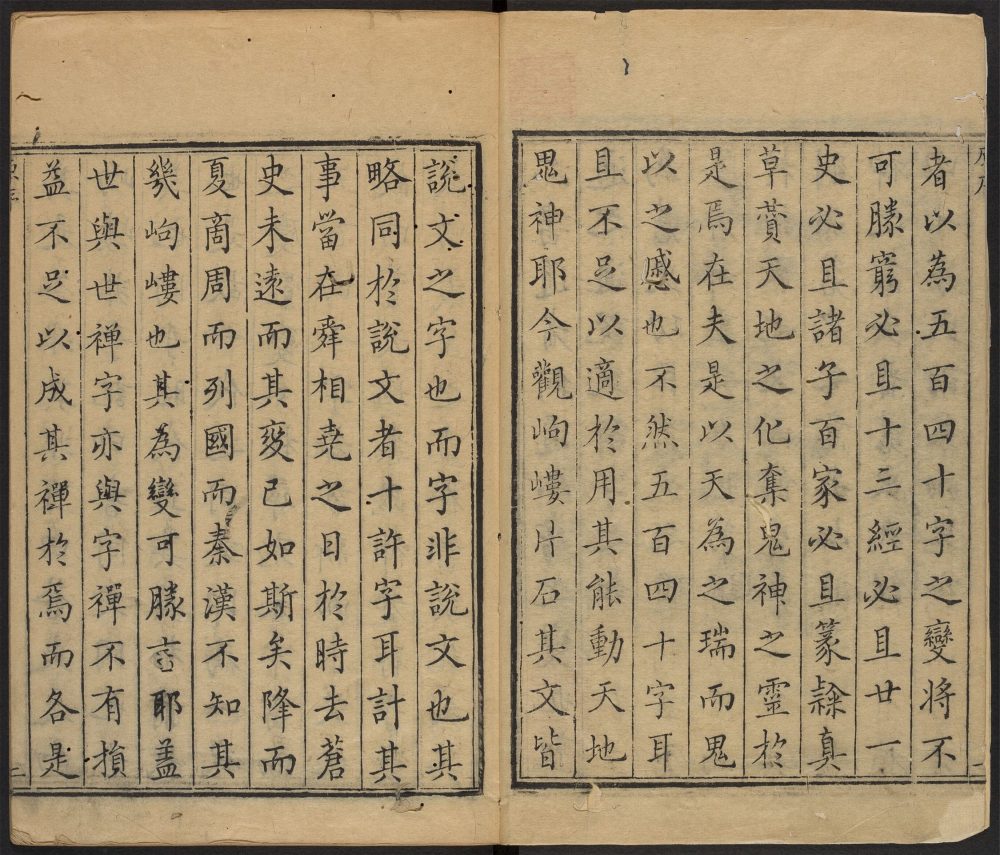 者以為五百四十字之變將不
可勝窮必且十三經必且廿一
史必且諸子百家必且篆隸真
草賛天地之化奪鬼神之靈於
是焉在夫是以天為之瑞而鬼
以之慼也不然五百四十字耳
且不足以適於用其能動天地
鬼神耶今觀岣嶁片石其文皆
說文之字也而字非說文也其
略同於說文者十許字耳計其
事當在舜相堯之日於時去蒼
史未遠而其變已如斯矣降而
夏商周而列國而秦漢不知其
幾岣嶁也其為變可勝言耶蓋
世與世禪字亦與字禪不有損
益不足以成其禪於焉而各是